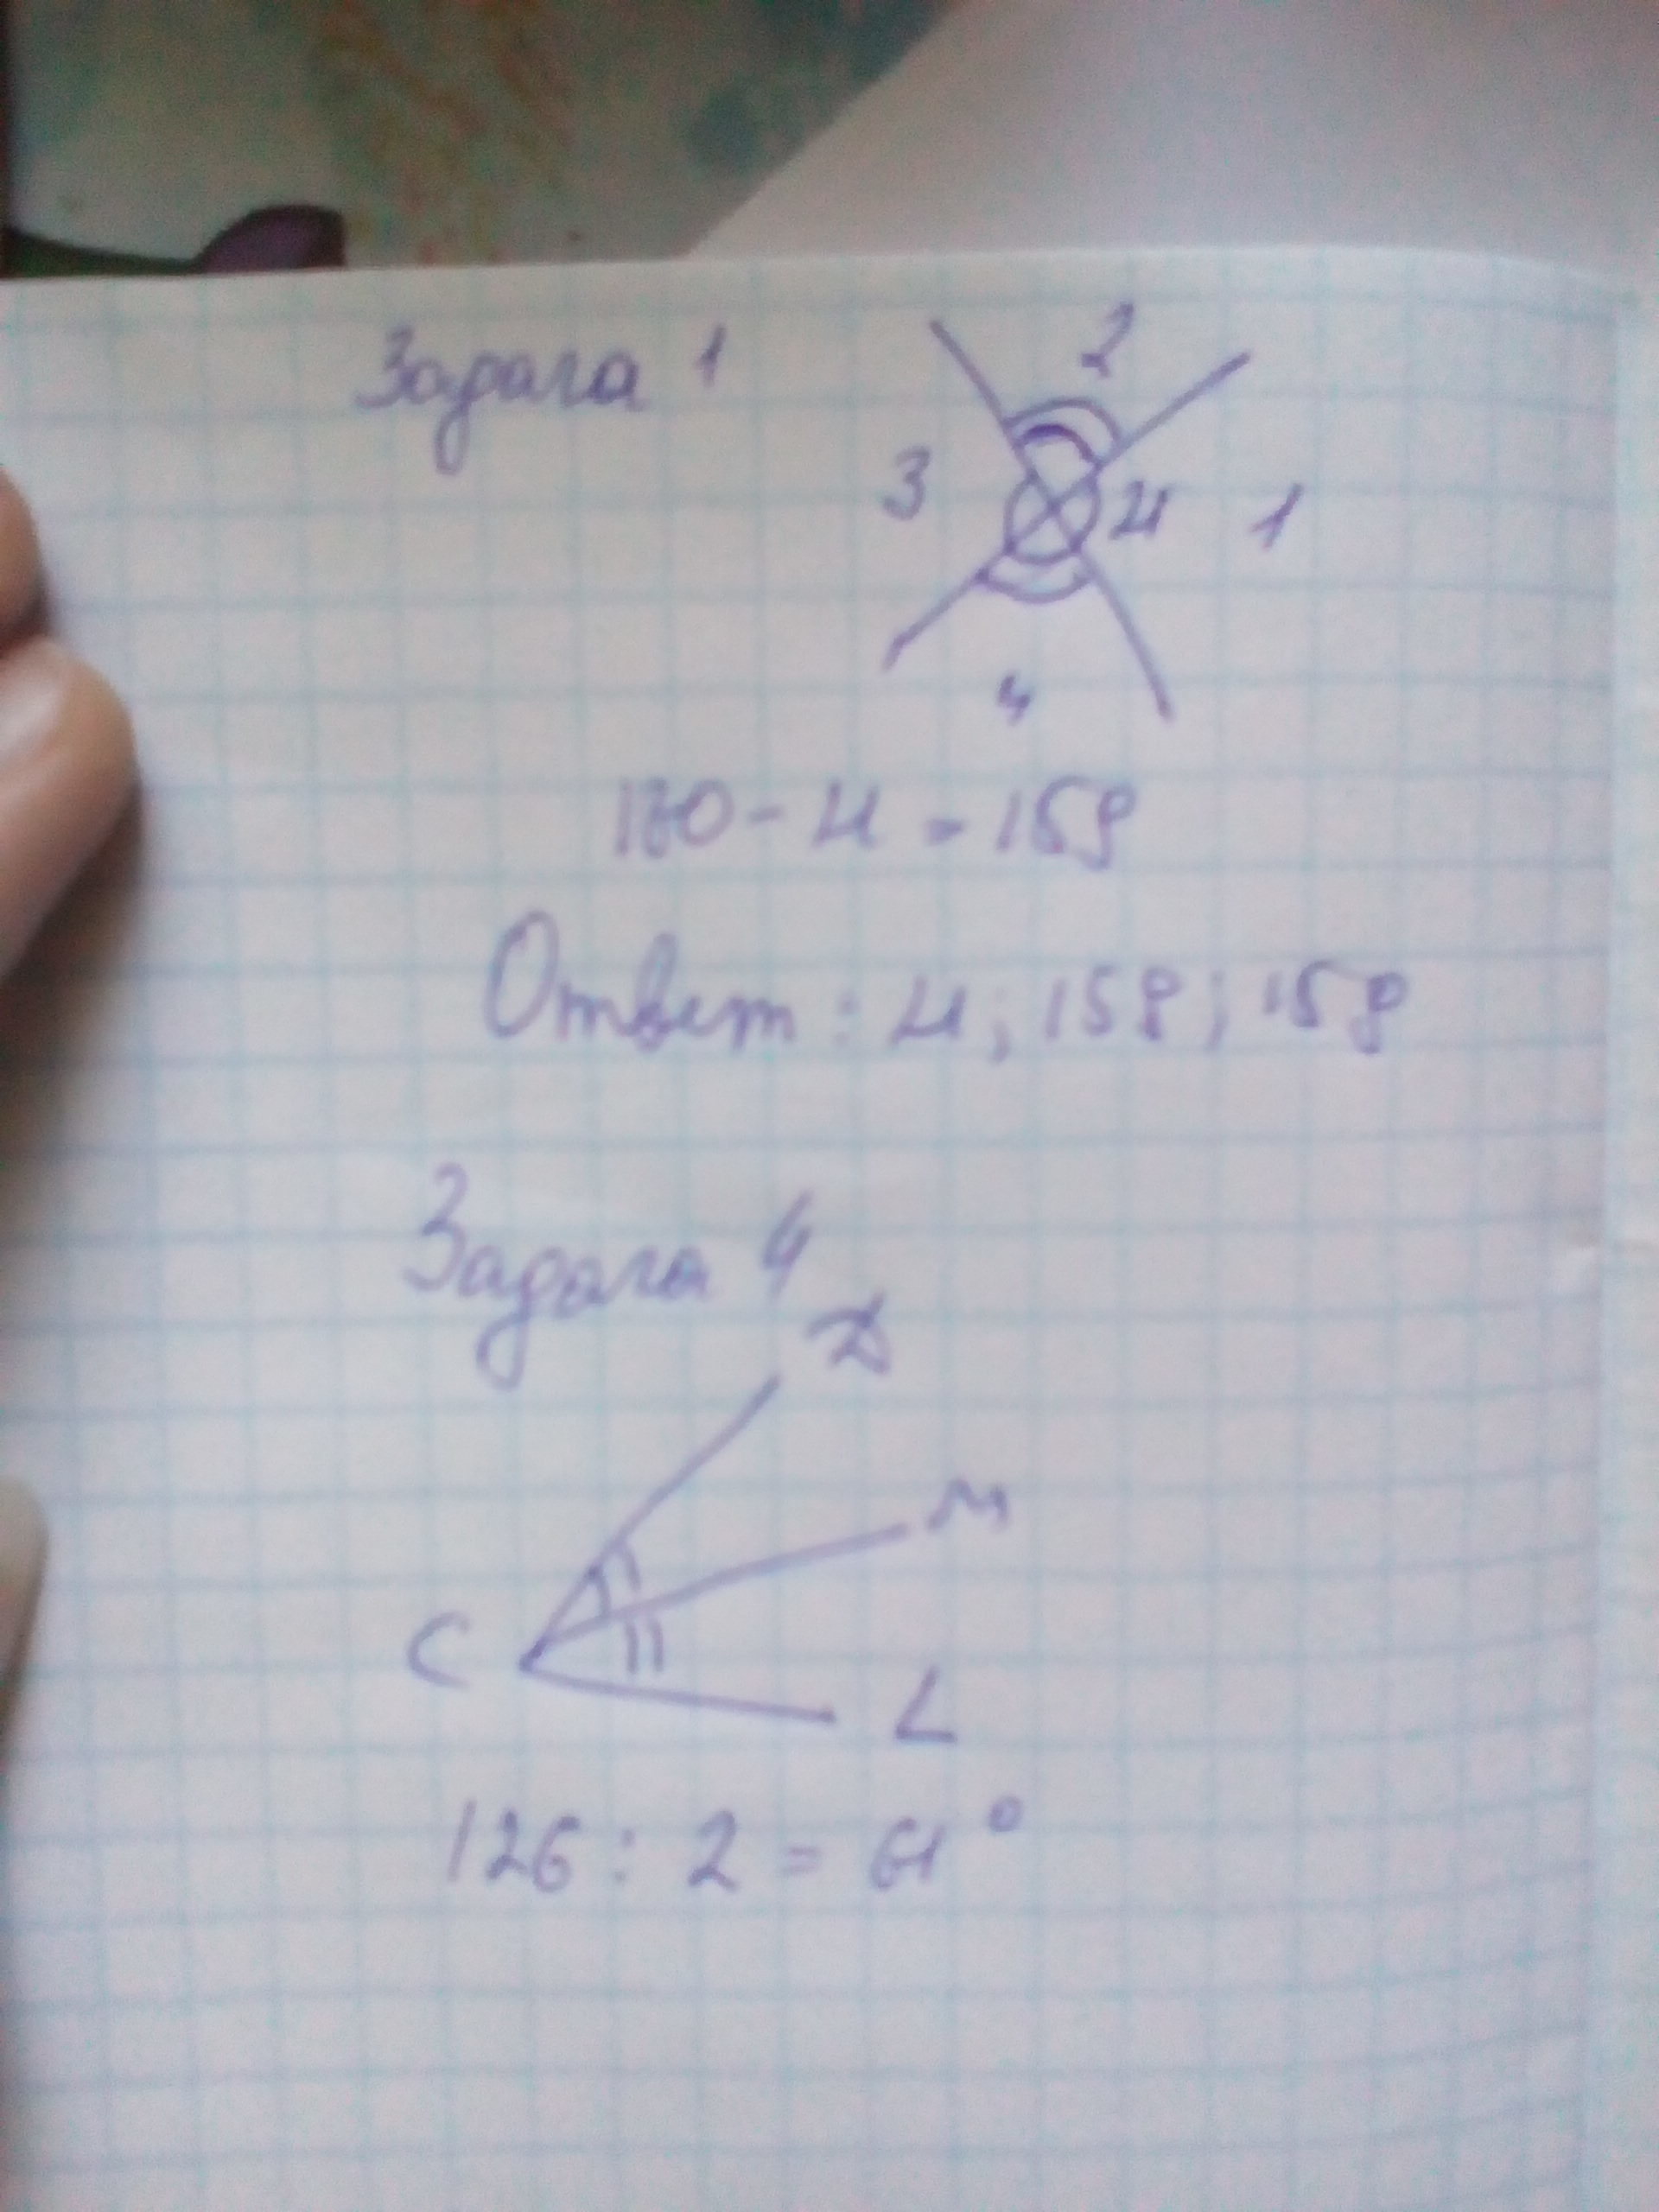 Задача 1
2
3 21 1
4
180 - 21 = 159
Ответ: 21; 159; 159
Задача 4
D
M
C
L
126 : 2 = 61°